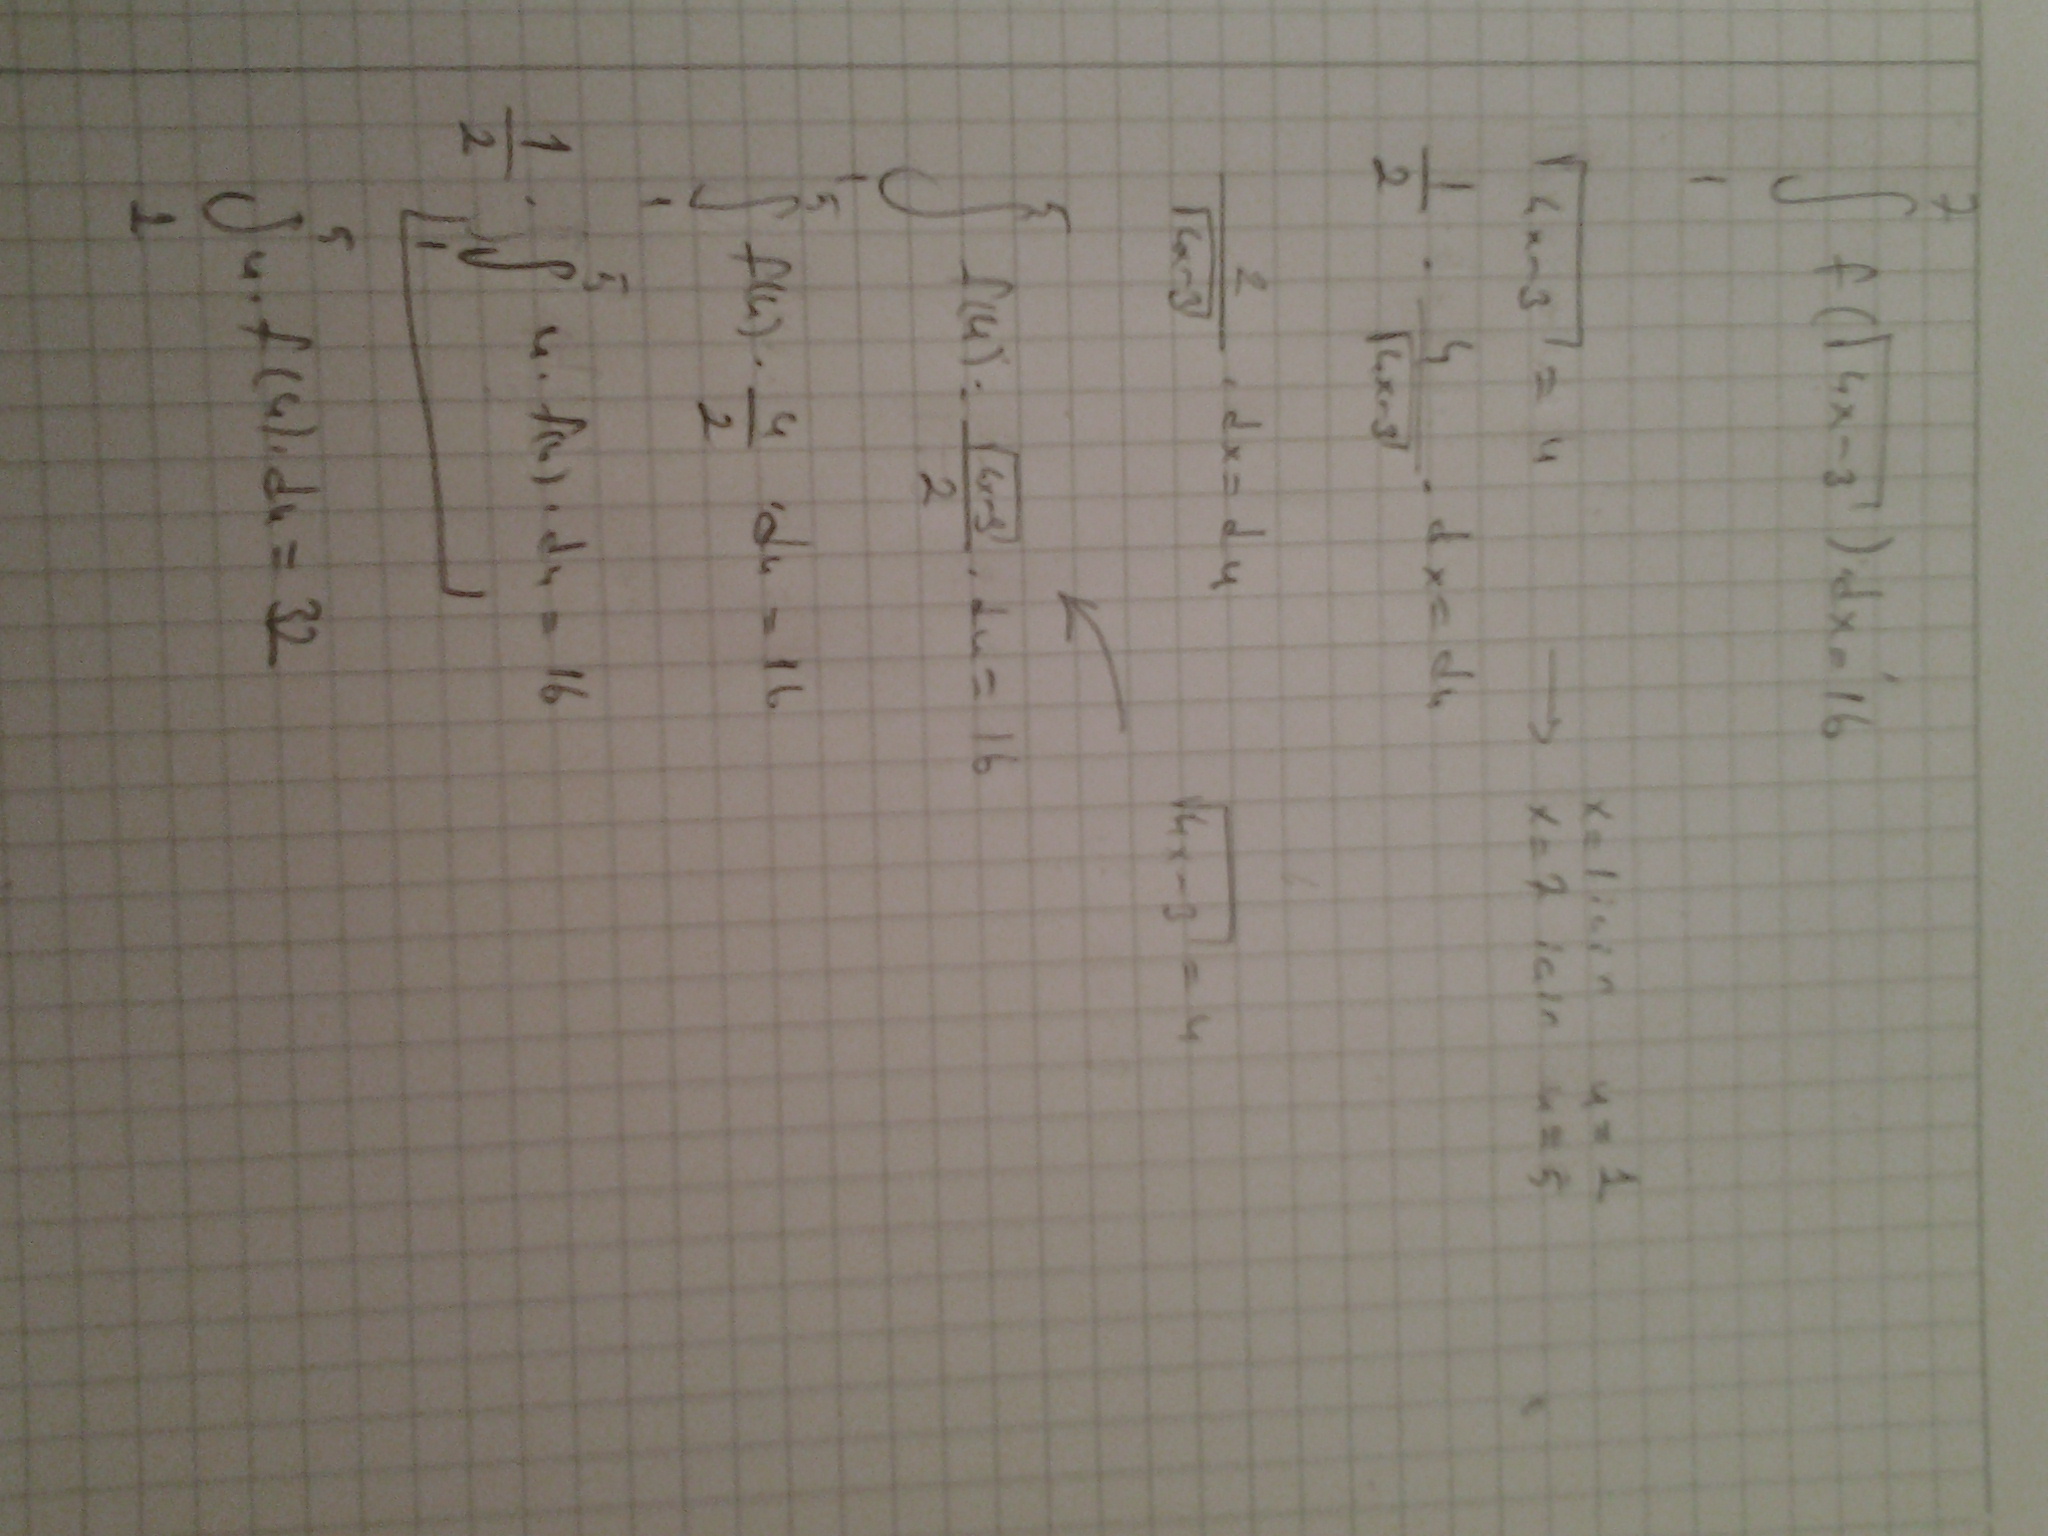 ∫₁⁷ f(√(4x-3)) dx = 16
√(4x-3) = u → x=1 için u=1
x=7 için u=5
1/2 · 4/√(4x-3) · dx = du
2/√(4x-3) · dx = du √(4x-3) = u
∫₁⁵ f(u) · √(4x-3)/2 · du = 16
∫₁⁵ f(u) · u/2 · du = 16
1/2 · ∫₁⁵ u · f(u) · du = 16
∫₁⁵ u · f(u) · du = 32